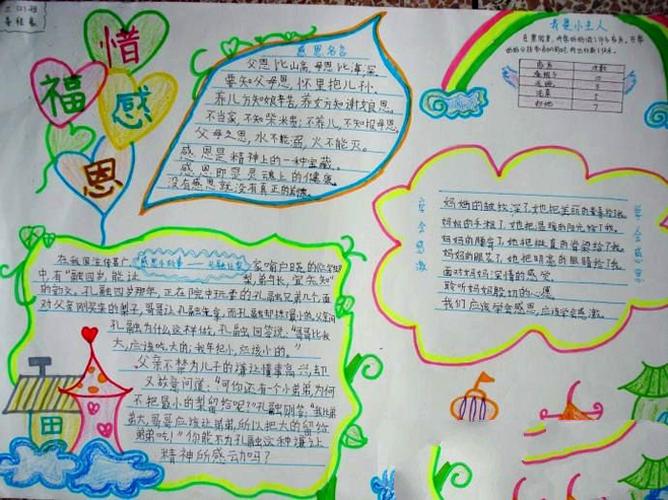 惜
福
感
恩
感恩名言
父恩比山高,母恩比海深。
要知父母恩,怀里抱儿孙。
养儿方知娘辛苦,养女方知谢娘恩。
不当家,不知柴米贵;不养儿,不知报母恩。
父母之恩,水不能溺,火不能灭。
感恩是精神上的一种宝藏。
感恩即是灵魂上的健康。
没有感恩就没有真正的美德。
我是小主人
次数
妈妈的皱纹深了,她把美丽的青春给我。
妈妈的手粗了,她把温暖的阳光给了我。
妈妈的腰弯了,她把挺直的脊梁给了我。
妈妈的眼花了,她把明亮的眼睛给了我。
面对妈妈深情的感受
聆听妈妈殷切的心愿
我们应该学会感恩,应该学会感激。
学会感激
学会感恩
中有“融四岁,能让
弟于长,宜先知”
的句文。孔融四岁那年,正在院中玩耍的孔融兄弟几个,面
对父亲刚买来的梨子,哥哥让孔融先拿,而孔融却挑最小的。父亲问
孔融为什么这样做,孔融回答说:“哥哥比我
大,应该吃大的;我年纪小,应该小的。”
父亲不禁为儿子的谦让懂事高兴,却
又故意问道:“可你还有个小弟弟,为何
不把最小的梨留给呢?”孔融则答:“我比弟
弟大,哥哥应该让弟弟,所以把大的留给
弟弟吃!”你能不为孔融这种谦让
精神所感动吗?